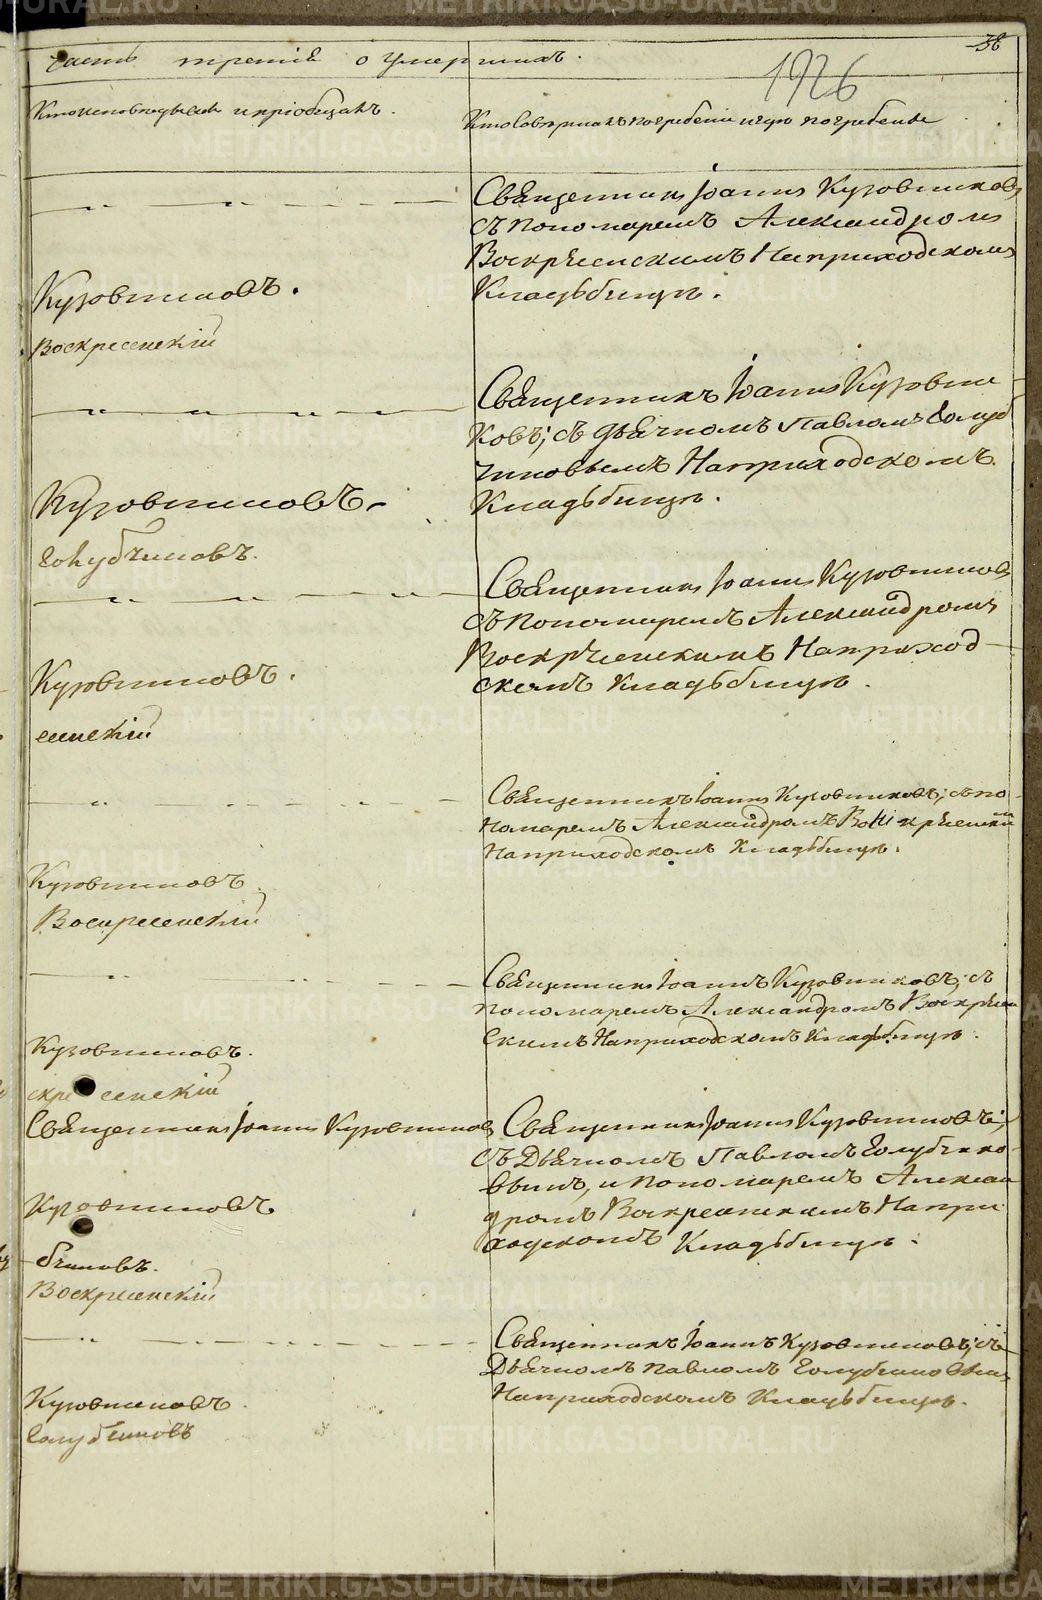 38
часть третія о умершихъ.
1926
Кто исповѣдывалъ и пріобщалъ.
Кто совершалъ погребеніе и гдѣ погребены
Священникъ Іоаннъ Кузовниковъ
съ пономаремъ Александромъ
Воскресенскимъ На приходскомъ
Кладьбищѣ.
Кузовниковъ.
Воскресенскій
Священникъ Іоаннъ Кузовни
ковъ; съ дьячкомъ Павломъ Голуб
чиковымъ На приходскомъ
Кладьбищѣ.
Кузовниковъ.
Голубчиковъ.
Священникъ Іоаннъ Кузовниковъ
съ пономаремъ Александромъ
Воскресенскимъ На приход
скомъ Кладьбищѣ.
Кузовниковъ.
сенскій
Священникъ Іоаннъ Кузовниковъ; съ по
номаремъ Александромъ
На приходскомъ Кладьбищѣ.
Кузовниковъ
Воскресенскій
Священникъ Іоаннъ Кузовниковъ; съ
пономаремъ Александромъ Воскресен
скимъ На приходскомъ Кладьбищѣ.
Кузовниковъ.
скре сенскій
Священникъ Іоаннъ Кузовниковъ
Священникъ Іоаннъ Кузовниковъ;
съ Дьячкомъ Павломъ Голубчико
вымъ, и пономаремъ Алексан
дромъ Воскресенскимъ На при
ходскомъ Кладьбищѣ.
Кузовниковъ
бчиковъ.
Воскресенскій
Священникъ Іоаннъ Кузовниковъ; съ
Дьячкомъ Павломъ Голубчиковымъ
На приходскомъ Кладьбищѣ.
Кузовниковъ.
Голубчиковъ
METRIKI.GASO-URAL.RU